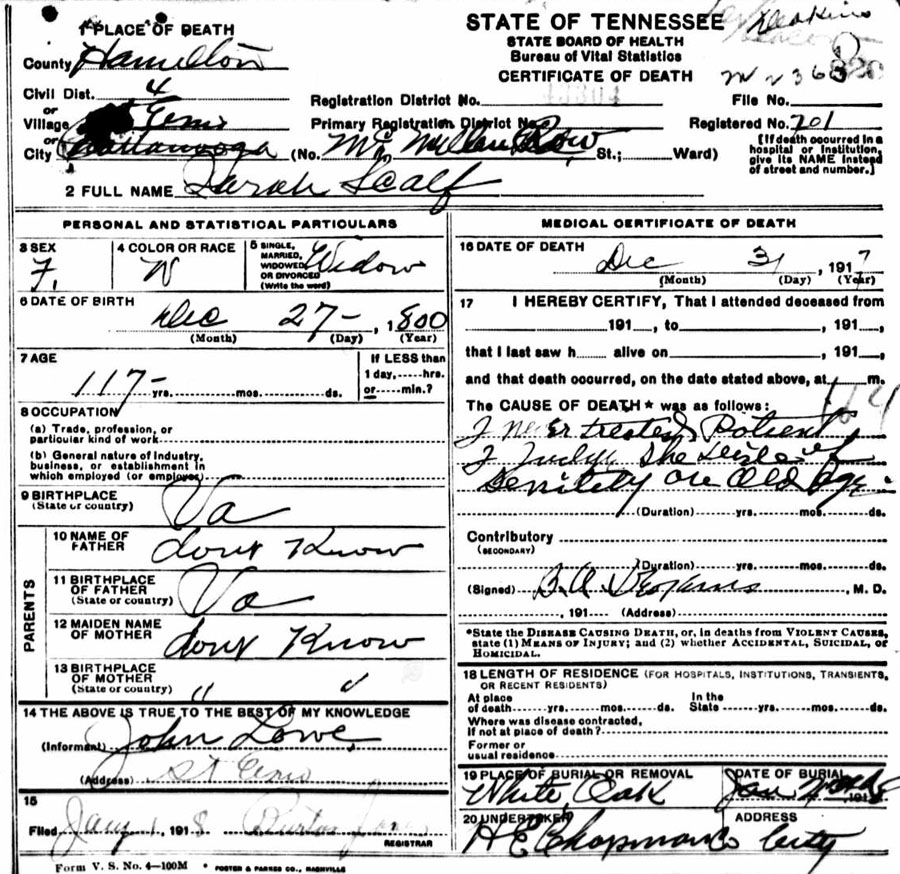 STATE OF TENNESSEE
STATE BOARD OF HEALTH
Bureau of Vital Statistics
CERTIFICATE OF DEATH
1 PLACE OF DEATH
County Hamilton
Civil Dist. 4
or
Village St Elmo
or
City Chattanooga (No. McMillan Row, St.; Ward)
Registration District No.
File No.
Primary Registration District No.
Registered No. 701
[If death occurred in a
hospital or institution,
give its NAME instead
of street and number.]
2 FULL NAME Sarah Scalf
PERSONAL AND STATISTICAL PARTICULARS
3 SEX
F.
4 COLOR OR RACE
W
5 SINGLE,
MARRIED,
WIDOWED
OR DIVORCED
(Write the word)
Widow
6 DATE OF BIRTH
Dec 27 - , 1800
(Month) (Day) (Year)
7 AGE
117 - yrs. mos. ds.
If LESS than
1 day, hrs.
or min.?
8 OCCUPATION
(a) Trade, profession, or
particular kind of work
(b) General nature of industry,
business, or establishment in
which employed (or employer)
9 BIRTHPLACE
(State or country)
Va
PARENTS
10 NAME OF
FATHER
dont Know
11 BIRTHPLACE
OF FATHER
(State or country)
Va
12 MAIDEN NAME
OF MOTHER
dont Know
13 BIRTHPLACE
OF MOTHER
(State or country)
" "
14 THE ABOVE IS TRUE TO THE BEST OF MY KNOWLEDGE
(Informant) John Lowe,
(Address) St Elmo
15
Filed Jany 1, 1918
REGISTRAR
MEDICAL CERTIFICATE OF DEATH
16 DATE OF DEATH
Dec 31, 1917
(Month) (Day) (Year)
17 I HEREBY CERTIFY, That I attended deceased from
191 , to , 191 ,
that I last saw h alive on , 191 ,
and that death occurred, on the date stated above, at m.
The CAUSE OF DEATH* was as follows:
164
I never treated Patient
I Judge she died of
Senility or Old Age
(Duration) yrs. mos. ds.
Contributory
(SECONDARY)
(Duration) yrs. mos. ds.
(Signed) , M. D.
, 191 (Address)
*State the DISEASE CAUSING DEATH, or, in deaths from VIOLENT CAUSES,
state (1) MEANS OF INJURY; and (2) whether ACCIDENTAL, SUICIDAL, or
HOMICIDAL.
18 LENGTH OF RESIDENCE (FOR HOSPITALS, INSTITUTIONS, TRANSIENTS,
OR RECENT RESIDENTS)
At place
of death yrs. mos. ds.
In the
State yrs. mos. ds.
Where was disease contracted,
if not at place of death?
Former or
usual residence
19 PLACE OF BURIAL OR REMOVAL
White Oak
DATE OF BURIAL
Jan 1918
20 UNDERTAKER
H E Chapman Co
ADDRESS
City
Form V. S. No. 4-100M • FOSTER & PARKES CO., NASHVILLE